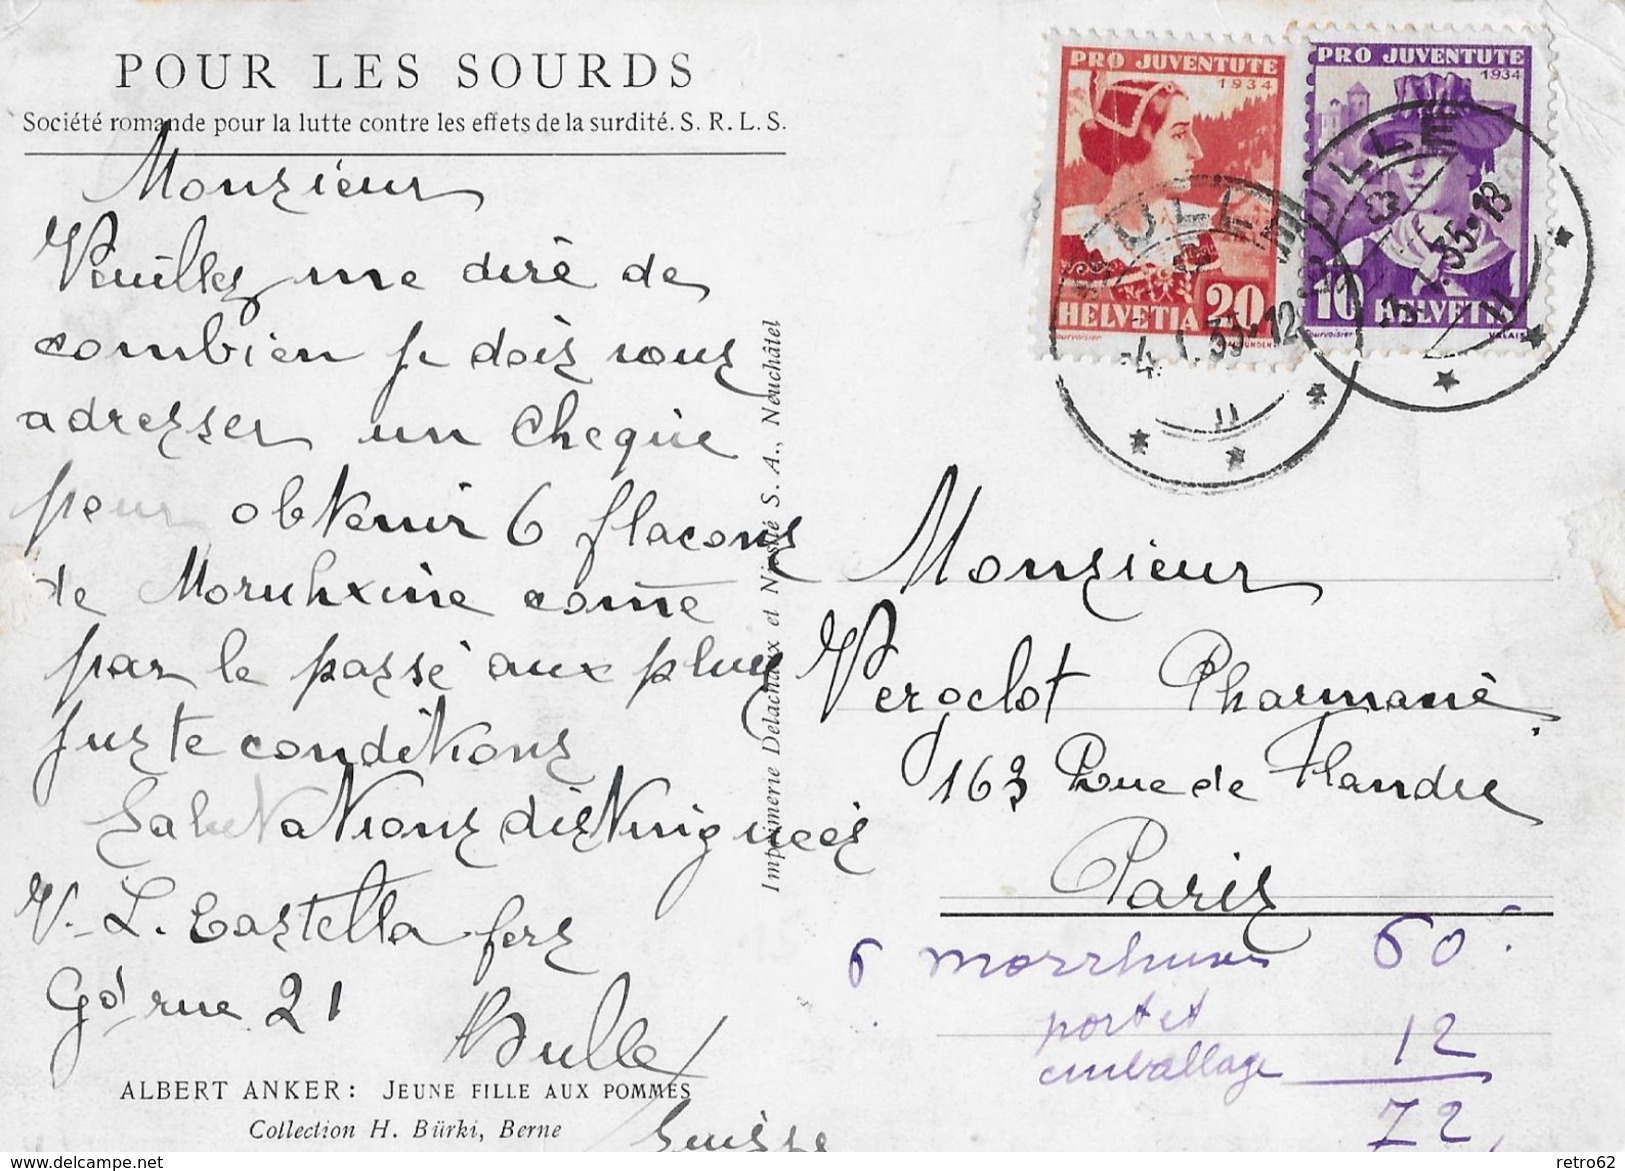 POUR LES SOURDS
Société romande pour la lutte contre les effets de la surdité. S. R. L. S.
Monsieur
Veuillez me dire de
combien je dois vous
adresser un chèque
pour obtenir 6 flacons
de Moruhxine come
par le passé aux plus
juste conditions
Salutations distinguées
V. L. Castella fers
Gd rue 21
Bulle
Suisse
ALBERT ANKER: JEUNE FILLE AUX POMMES
Collection H. Bürki, Berne
Imprimerie Delachaux et Niestlé S. A., Neuchâtel
PRO JUVENTUTE
1934
HELVETIA 20
Courvoisier
PRO JUVENTUTE
1934
10 HELVETIA
Courvoisier
VALAIS
BULLE
-4. I. 35-12
BULLE
-3. I. 35-18
Monsieur
Veroclot Pharmanè
163 Rue de Flandre
Paris
6 morrhuines 60
port et
emballage 12
72
delcampe.net
retro62